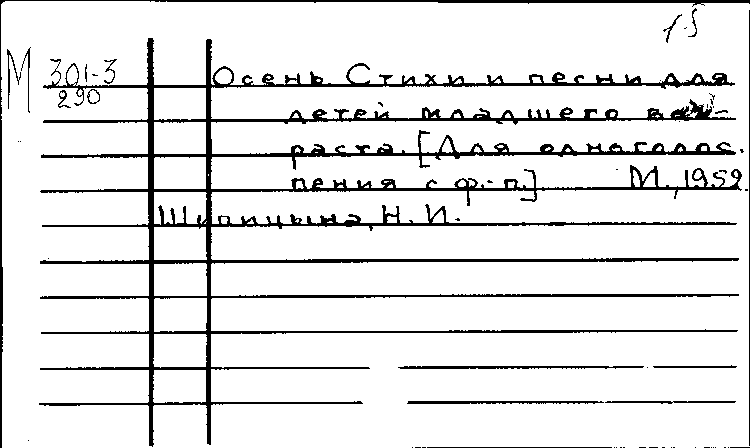 1.5
М 301-3
290
Осень. Стихи и песни для
детей младшего воз-
раста. [Для одноголос.
пения с ф.-п.] М., 1959.
Шипицына, Н. И.